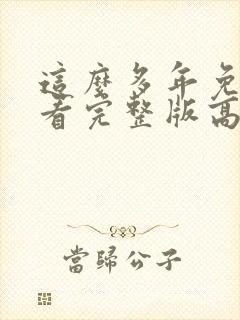 這麼多年免
看完整版高
當歸公子